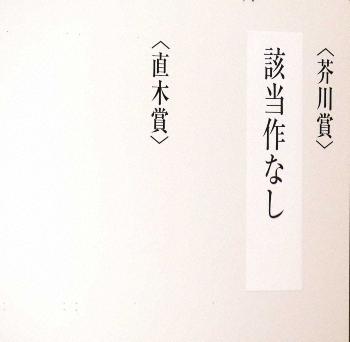 〈芥川賞〉
該当作なし
〈直木賞〉